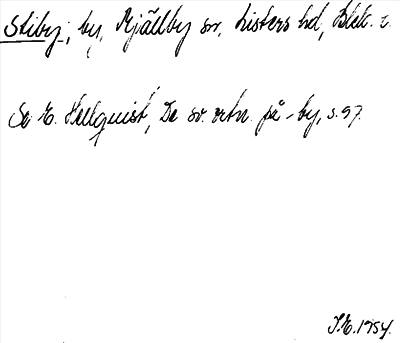 Stiby, by, Mjällby sn, Listers hd, Blek. l.
Se E. Hellquist, De sv. ortn. på -by, s. 97.
J.E. 1954.